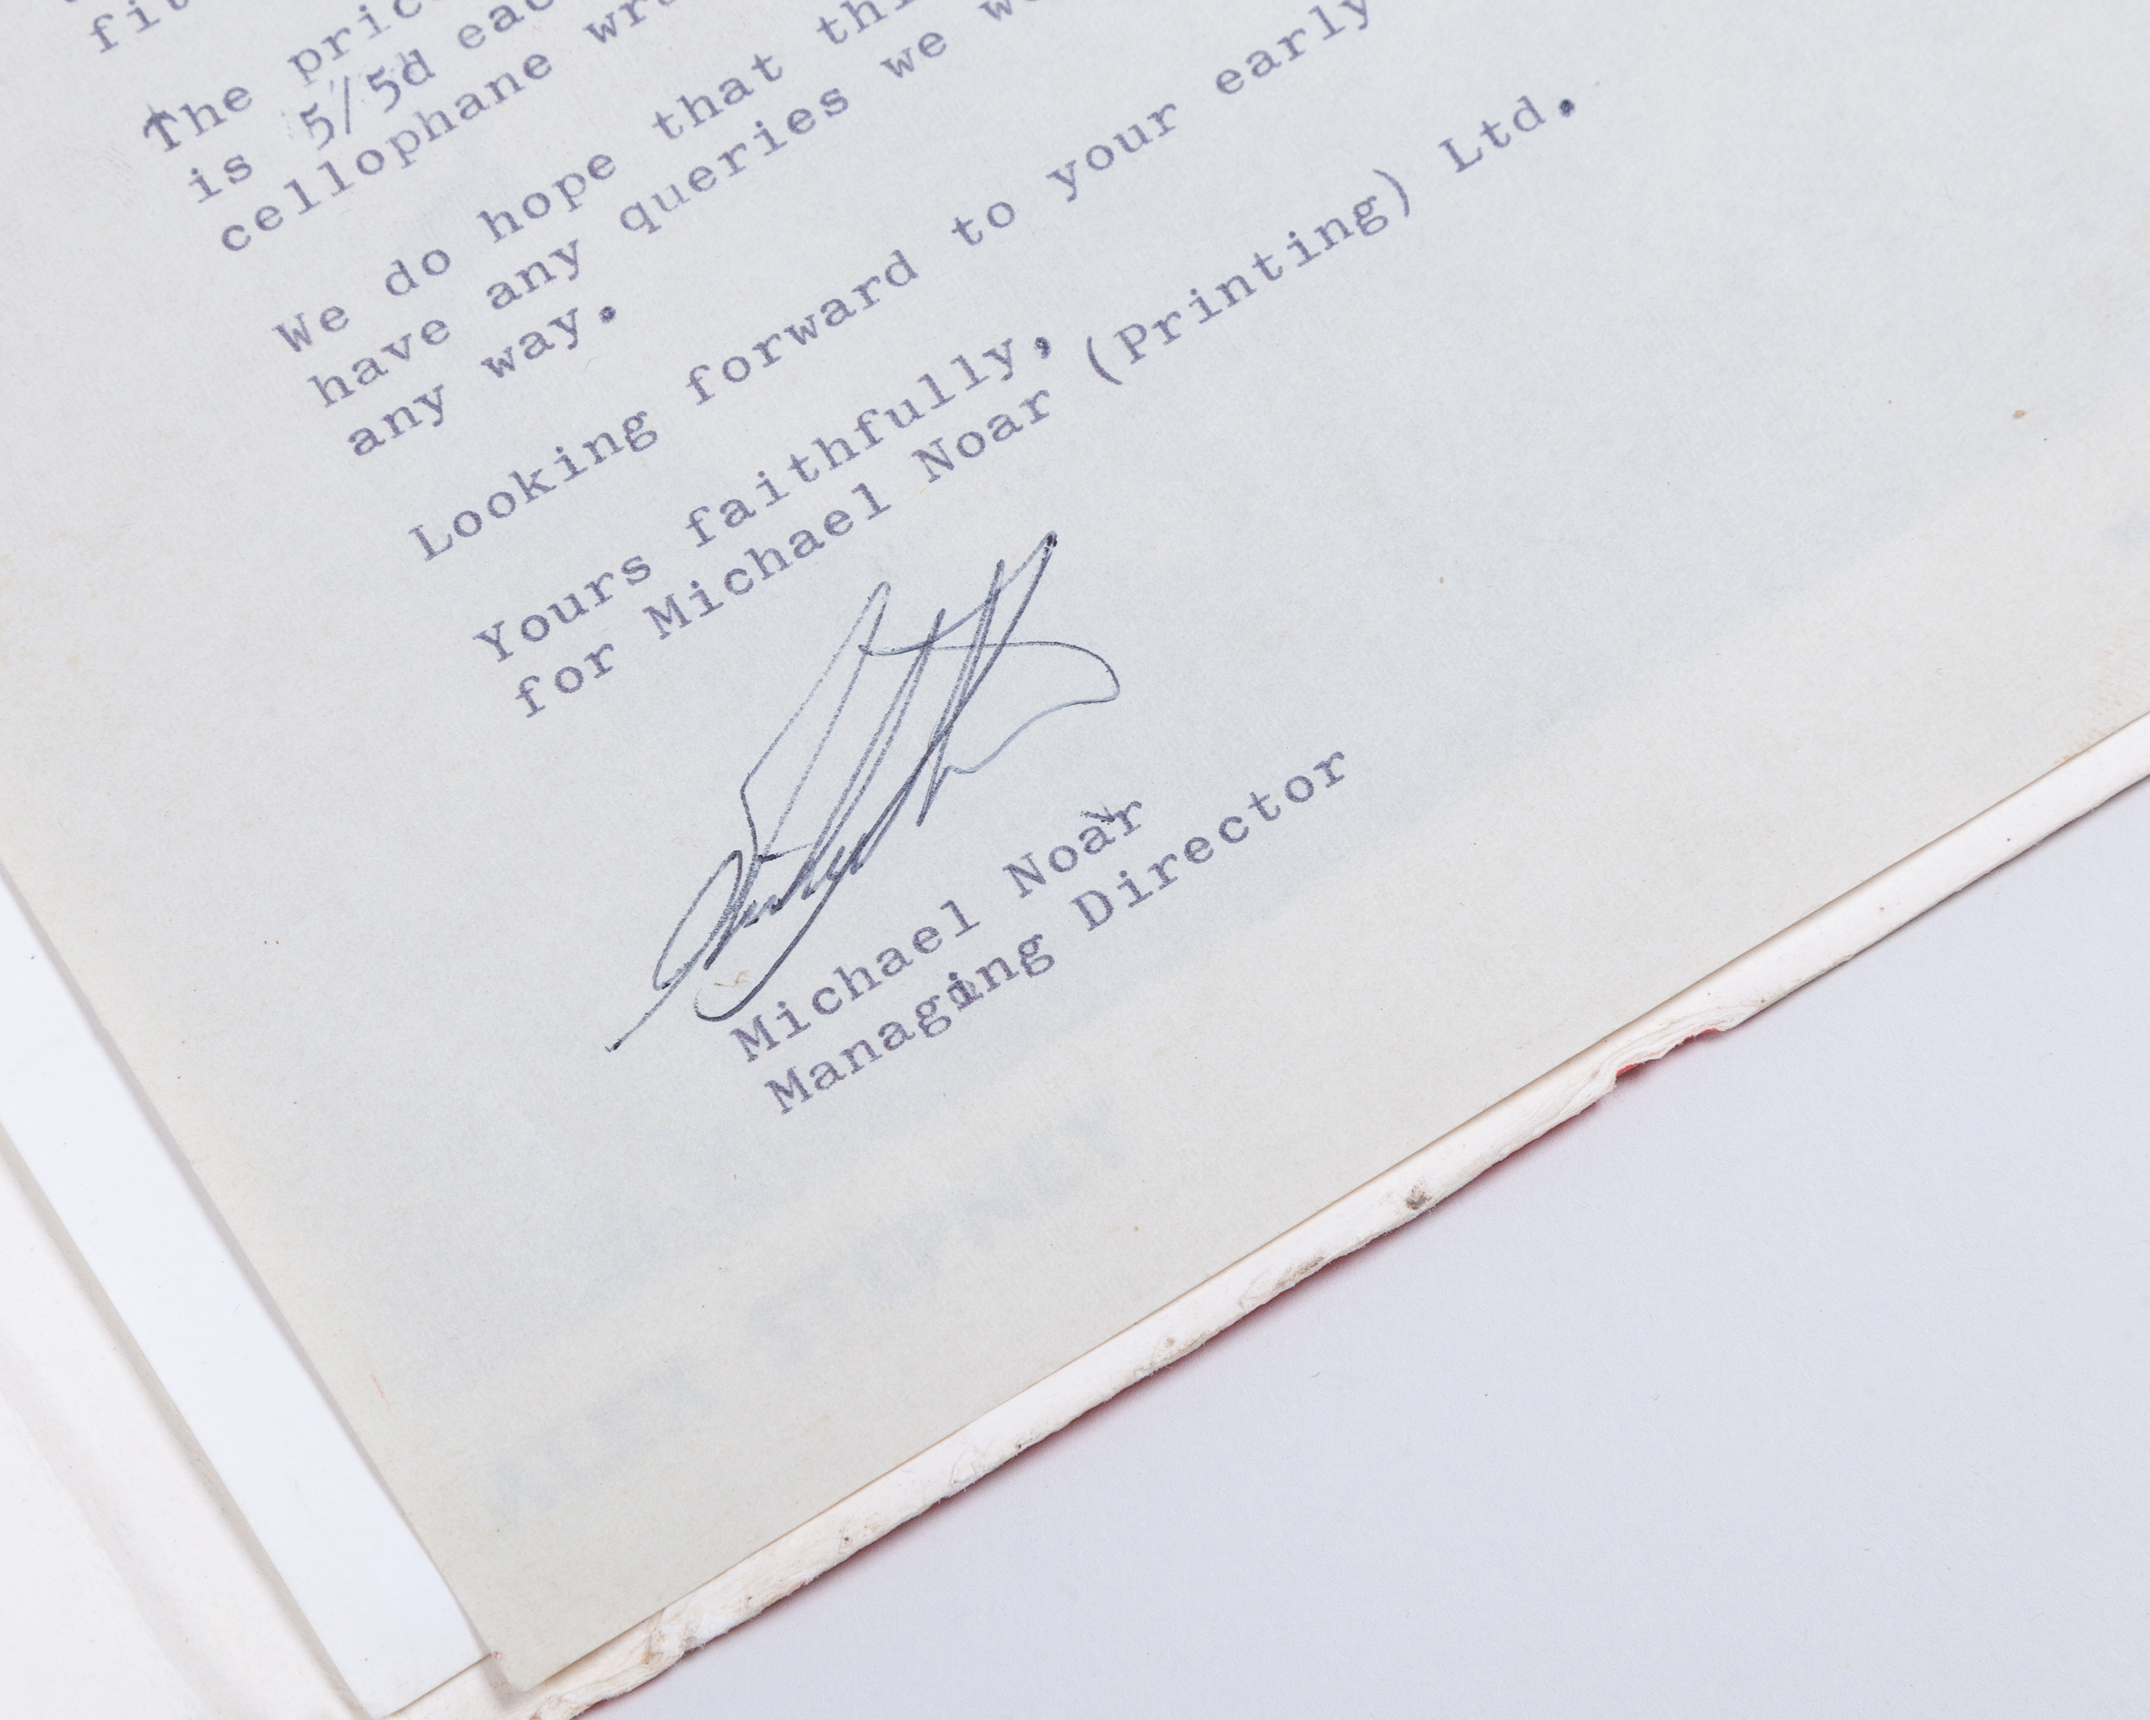 The
is 5/5d
cellophane
We do hope that
have any queries we
any way.
Looking forward to your early
Yours faithfully,
for Michael Noar (Printing) Ltd.
Michael Noar
Managing Director